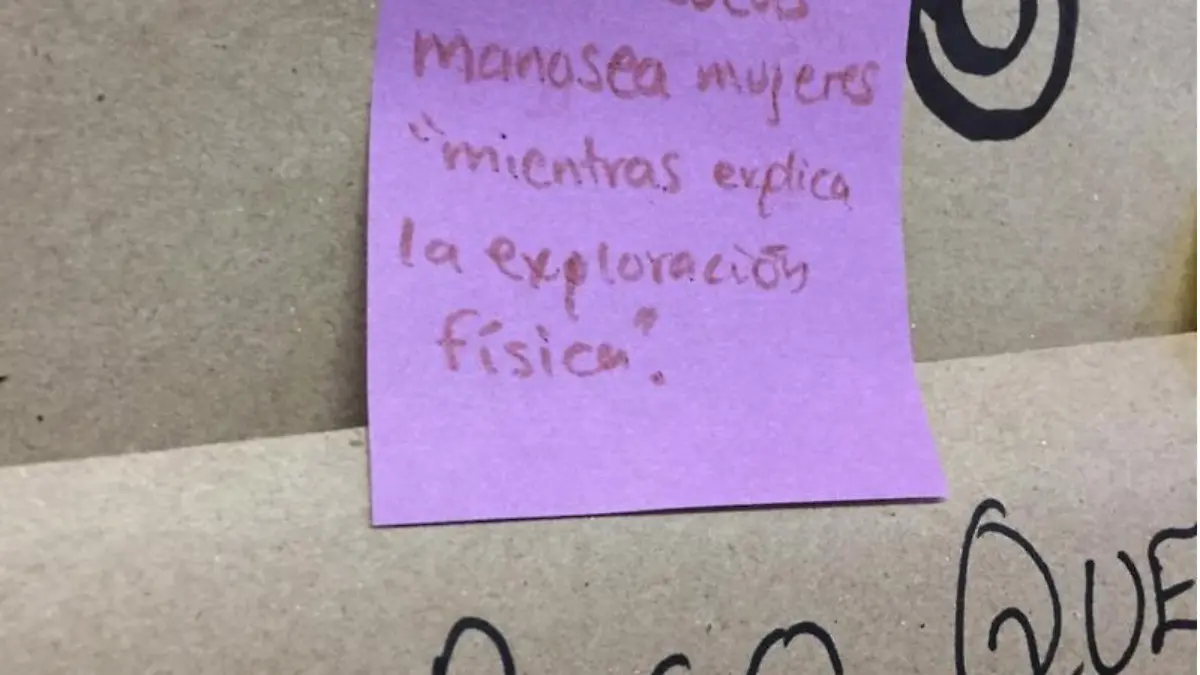 manosea mujeres
"mientras explica
la exploración
física".
QUE